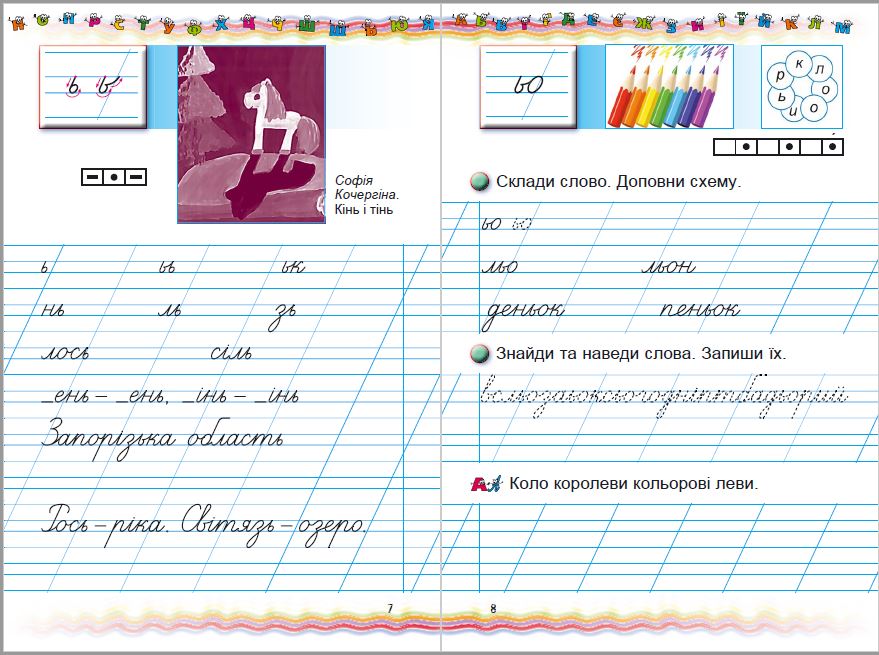 Н О П Р С Т У Ф Х Ц Ч Ш Щ Ь Ю Я
ь ь
Софія
Кочергіна.
Кінь і тінь
ь ьь ьк
нь ль зь
лось сіль
_ень – _ень, _інь – _інь
Запорізька область
Рось – ріка. Світязь – озеро.
7
А Б В Г Ґ Д Е Є Ж З И І Ї Й К Л М
ьо
к л о о и ь р
Склади слово. Доповни схему.
ьо ьо
льо льон
деньок пеньок
Знайди та наведи слова. Запиши їх.
Коло королеви кольорові леви.
8